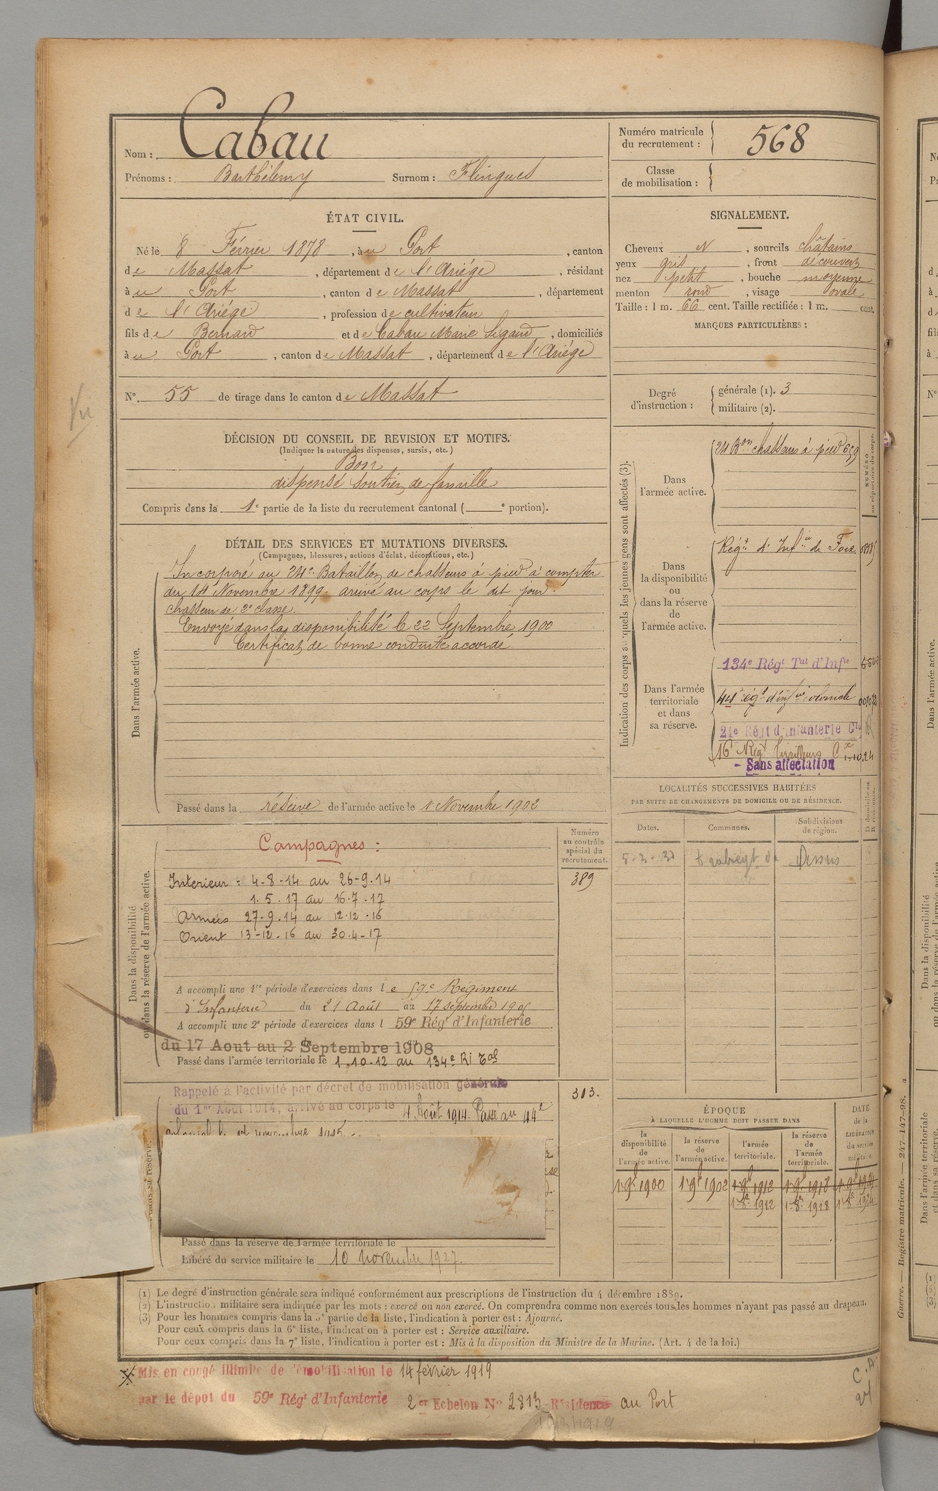 Nom : Cabau
Prénoms : Barthélemy Surnom : Flingues
ÉTAT CIVIL.
Né le 8 Février 1878, à u Port, canton
de Massat, département de l'Ariège, résidant
à u Port, canton de Massat, département
de l'Ariège, profession de cultivateur
fils de Bernard et de Cabau Marie Ligaud, domiciliés
à u Port, canton de Massat, département de l'Ariège
N° 55 de tirage dans le canton de Massat
Vu
DÉCISION DU CONSEIL DE REVISION ET MOTIFS.
(Indiquer la nature des dispenses, sursis, etc.)
Bon
dispensé soutien de famille
Compris dans la 1e partie de la liste du recrutement cantonal ( e portion).
DÉTAIL DES SERVICES ET MUTATIONS DIVERSES.
(Campagnes, blessures, actions d'éclat, décorations, etc.)
Dans l'armée active.
Incorporé au 24e Bataillon de chasseurs à pied à compter
du 14 Novembre 1899 arrivé au corps le dit jour
chasseur de 2e classe.
Envoyé dans la disponibilité le 22 Septembre 1900
Certificat de bonne conduite accordé
Passé dans la réserve de l'armée active le 1 Novembre 1902
Dans la disponibilité
ou dans la réserve de l'armée active.
Numéro
au contrôle
spécial du
recrutement.
389
Campagnes :
Intérieur : 4-8-14 au 26-9-14
1.5.17 au 16.7.17
Armées 27-9.14 au 12.12.16
Orient 13-12.16 au 30.4-17
A accompli une 1re période d'exercices dans le 59e Régiment
d'Infanterie du 21 Août au 17 septembre
A accompli une 2e période d'exercices dans l 59e Rég' d'Infanterie
du 17 Aout au 2 Septembre 1908
Passé dans l'armée territoriale le 1.10.12 au 134e RI Tal
Rappelé à l'activité par décret de mobilisation générale
du 1er Août 1914, arrivé au corps le 4 Août 1914. Passé au 44e
313.
Passé dans la réserve de l'armée territoriale le
Libéré du service militaire le 10 novembre 1927.
Numéro matricule
du recrutement : 568
Classe
de mobilisation :
SIGNALEMENT.
Cheveux N, sourcils châtains
yeux gris, front découvert
nez petit, bouche moyenne
menton rond, visage ovale
Taille : 1 m. 66 cent. Taille rectifiée : 1 m. cent.
MARQUES PARTICULIÈRES :
Degré
d'instruction :
générale (1). 3
militaire (2).
Indication des corps auxquels les jeunes gens sont affectés (3).
Dans
l'armée active.
24 Bon chasseurs à pied
Dans
la disponibilité
ou
dans la réserve
de
l'armée active.
Régt d'Infie de Foix
Dans l'armée
territoriale
et dans
sa réserve.
134e Régt Tal d'Infie
44e régt d'infie coloniale
21e Régt d'infanterie Cle
16e Régt Tirailleurs
- Sans affectation
LOCALITÉS SUCCESSIVES HABITÉES
PAR SUITE DE CHANGEMENTS DE DOMICILE OU DE RÉSIDENCE.
Dates.
Communes.
Subdivisions
de région.
ÉPOQUE
À LAQUELLE L'HOMME DOIT PASSER DANS
DATE
de la
LIBÉRATION
du service
militaire.
la disponibilité
de
l'armée active.
la réserve
de
l'armée active.
l'armée
territoriale.
la réserve
de
l'armée
territoriale.
1 9bre 1900 1 9bre 1902 1 9bre 1912 1 9bre 1918
1 8bre 1912 1 8bre 1918
(1) Le degré d'instruction générale sera indiqué conformément aux prescriptions de l'instruction du 4 décembre 1889.
(2) L'instruction militaire sera indiquée par les mots : exercé ou non exercé. On comprendra comme non exercés tous les hommes n'ayant pas passé au drapeau.
(3) Pour les hommes compris dans la 5e partie de la liste, l'indication à porter est : Ajourné.
Pour ceux compris dans la 6e liste, l'indication à porter est : Service auxiliaire.
Pour ceux compris dans la 7e liste, l'indication à porter est : Mis à la disposition du Ministre de la Marine. (Art. 4 de la loi.)
Mis en congé illimité de démobilisation le 14 février 1919
par le dépôt du 59e Régt d'Infanterie 2e Echelon No 2813 Résidence au Port
Guerre. — Registre matricule. — 247-147-98.